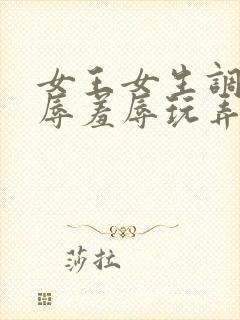 女王女生調
辱羞辱玩弄
莎拉